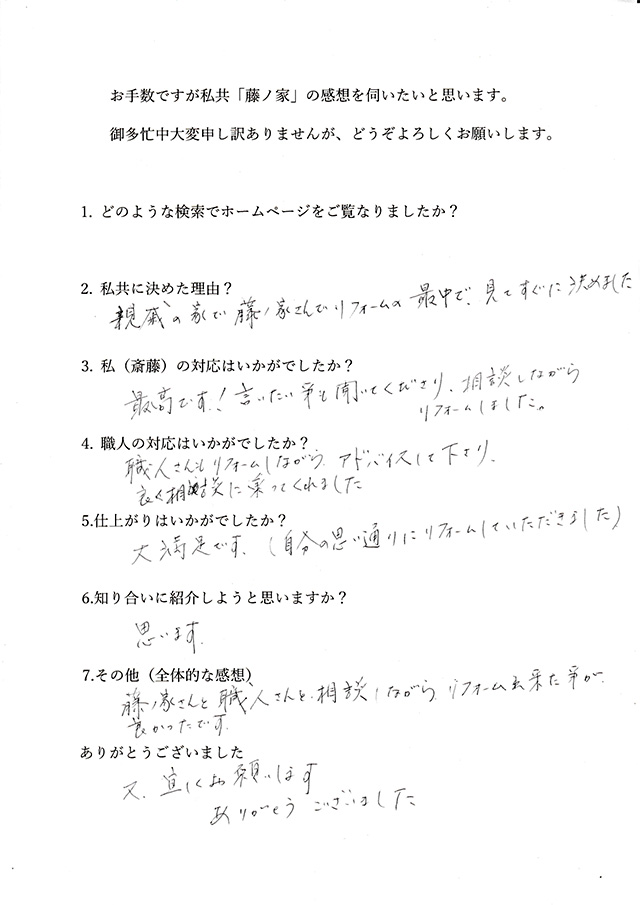 お手数ですが私共「藤ノ家」の感想を伺いたいと思います。
御多忙中大変申し訳ありませんが、どうぞよろしくお願いします。
1. どのような検索でホームページをご覧なりましたか？
2. 私共に決めた理由？
親戚の家で藤ノ家さんでリフォームの最中で、見てすぐに決めました
3. 私（斎藤）の対応はいかがでしたか？
最高です！言いたい事も聞いてくださり、相談しながら
リフォームしました。
4. 職人の対応はいかがでしたか？
職人さんもリフォームしながら、アドバイスして下さり、
良く相談に乗ってくれました
5.仕上がりはいかがでしたか？
大満足です。（自分の思い通りにリフォームしていただきました）
6.知り合いに紹介しようと思いますか？
思います。
7.その他（全体的な感想）
藤ノ家さんと職人さんと、相談しながら、リフォーム出来た事が、
良かったです。
ありがとうございました
又、宜しくお願いします
ありがとうございました